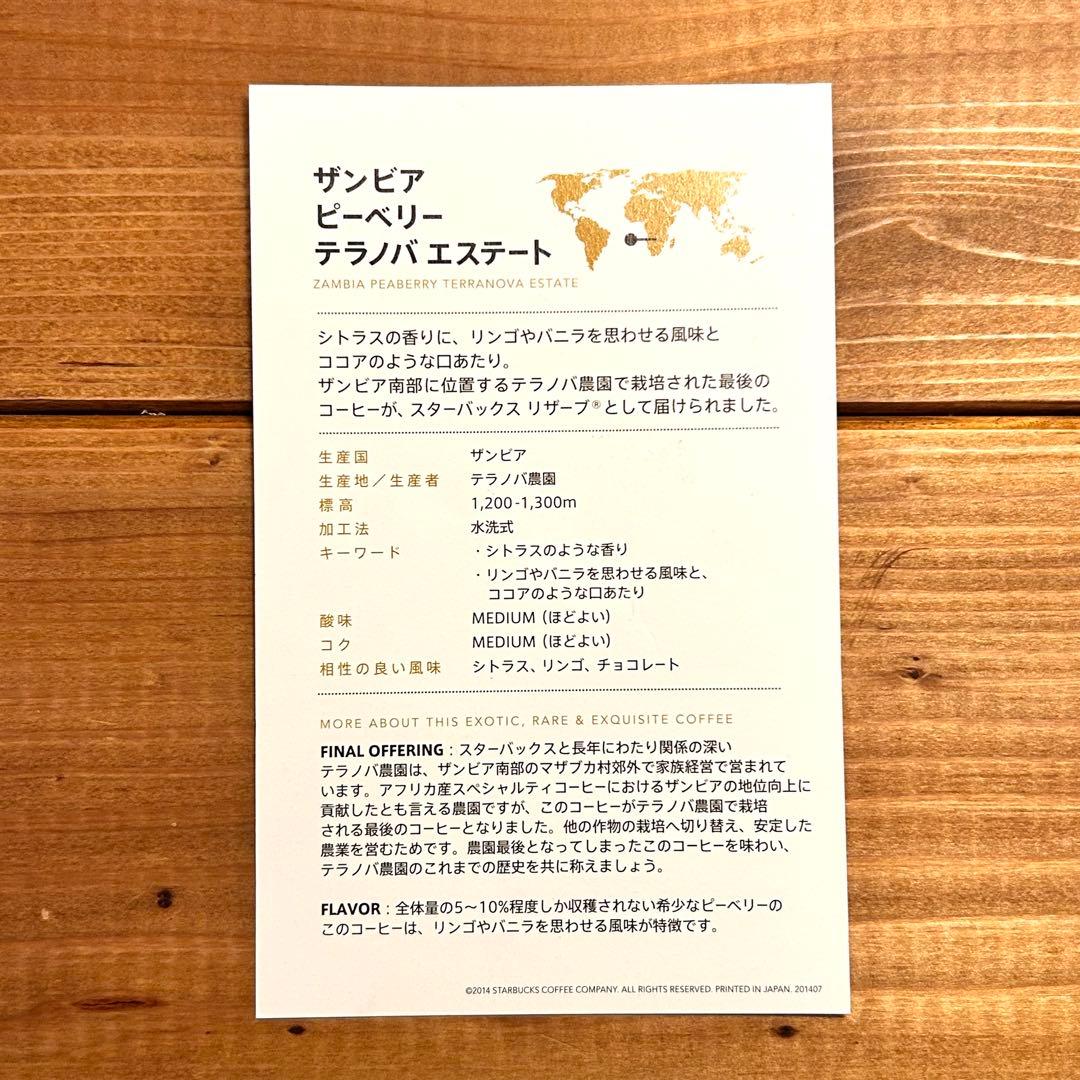 ザンビア
ピーベリー
テラノバ エステート
ZAMBIA PEABERRY TERRANOVA ESTATE
シトラスの香りに、リンゴやバニラを思わせる風味と
ココアのような口あたり。
ザンビア南部に位置するテラノバ農園で栽培された最後の
コーヒーが、スターバックス リザーブ®として届けられました。
生産国 ザンビア
生産地／生産者 テラノバ農園
標高 1,200-1,300m
加工法 水洗式
キーワード ・シトラスのような香り
・リンゴやバニラを思わせる風味と、
ココアのような口あたり
酸味 MEDIUM (ほどよい)
コク MEDIUM (ほどよい)
相性の良い風味 シトラス、リンゴ、チョコレート
MORE ABOUT THIS EXOTIC, RARE & EXQUISITE COFFEE
FINAL OFFERING：スターバックスと長年にわたり関係の深い
テラノバ農園は、ザンビア南部のマザブカ村郊外で家族経営で営まれて
います。アフリカ産スペシャルティコーヒーにおけるザンビアの地位向上に
貢献したとも言える農園ですが、このコーヒーがテラノバ農園で栽培
される最後のコーヒーとなりました。他の作物の栽培へ切り替え、安定した
農業を営むためです。農園最後となってしまったこのコーヒーを味わい、
テラノバ農園のこれまでの歴史を共に称えましょう。
FLAVOR：全体量の5〜10%程度しか収穫されない希少なピーベリーの
このコーヒーは、リンゴやバニラを思わせる風味が特徴です。
©2014 STARBUCKS COFFEE COMPANY. ALL RIGHTS RESERVED. PRINTED IN JAPAN. 201407